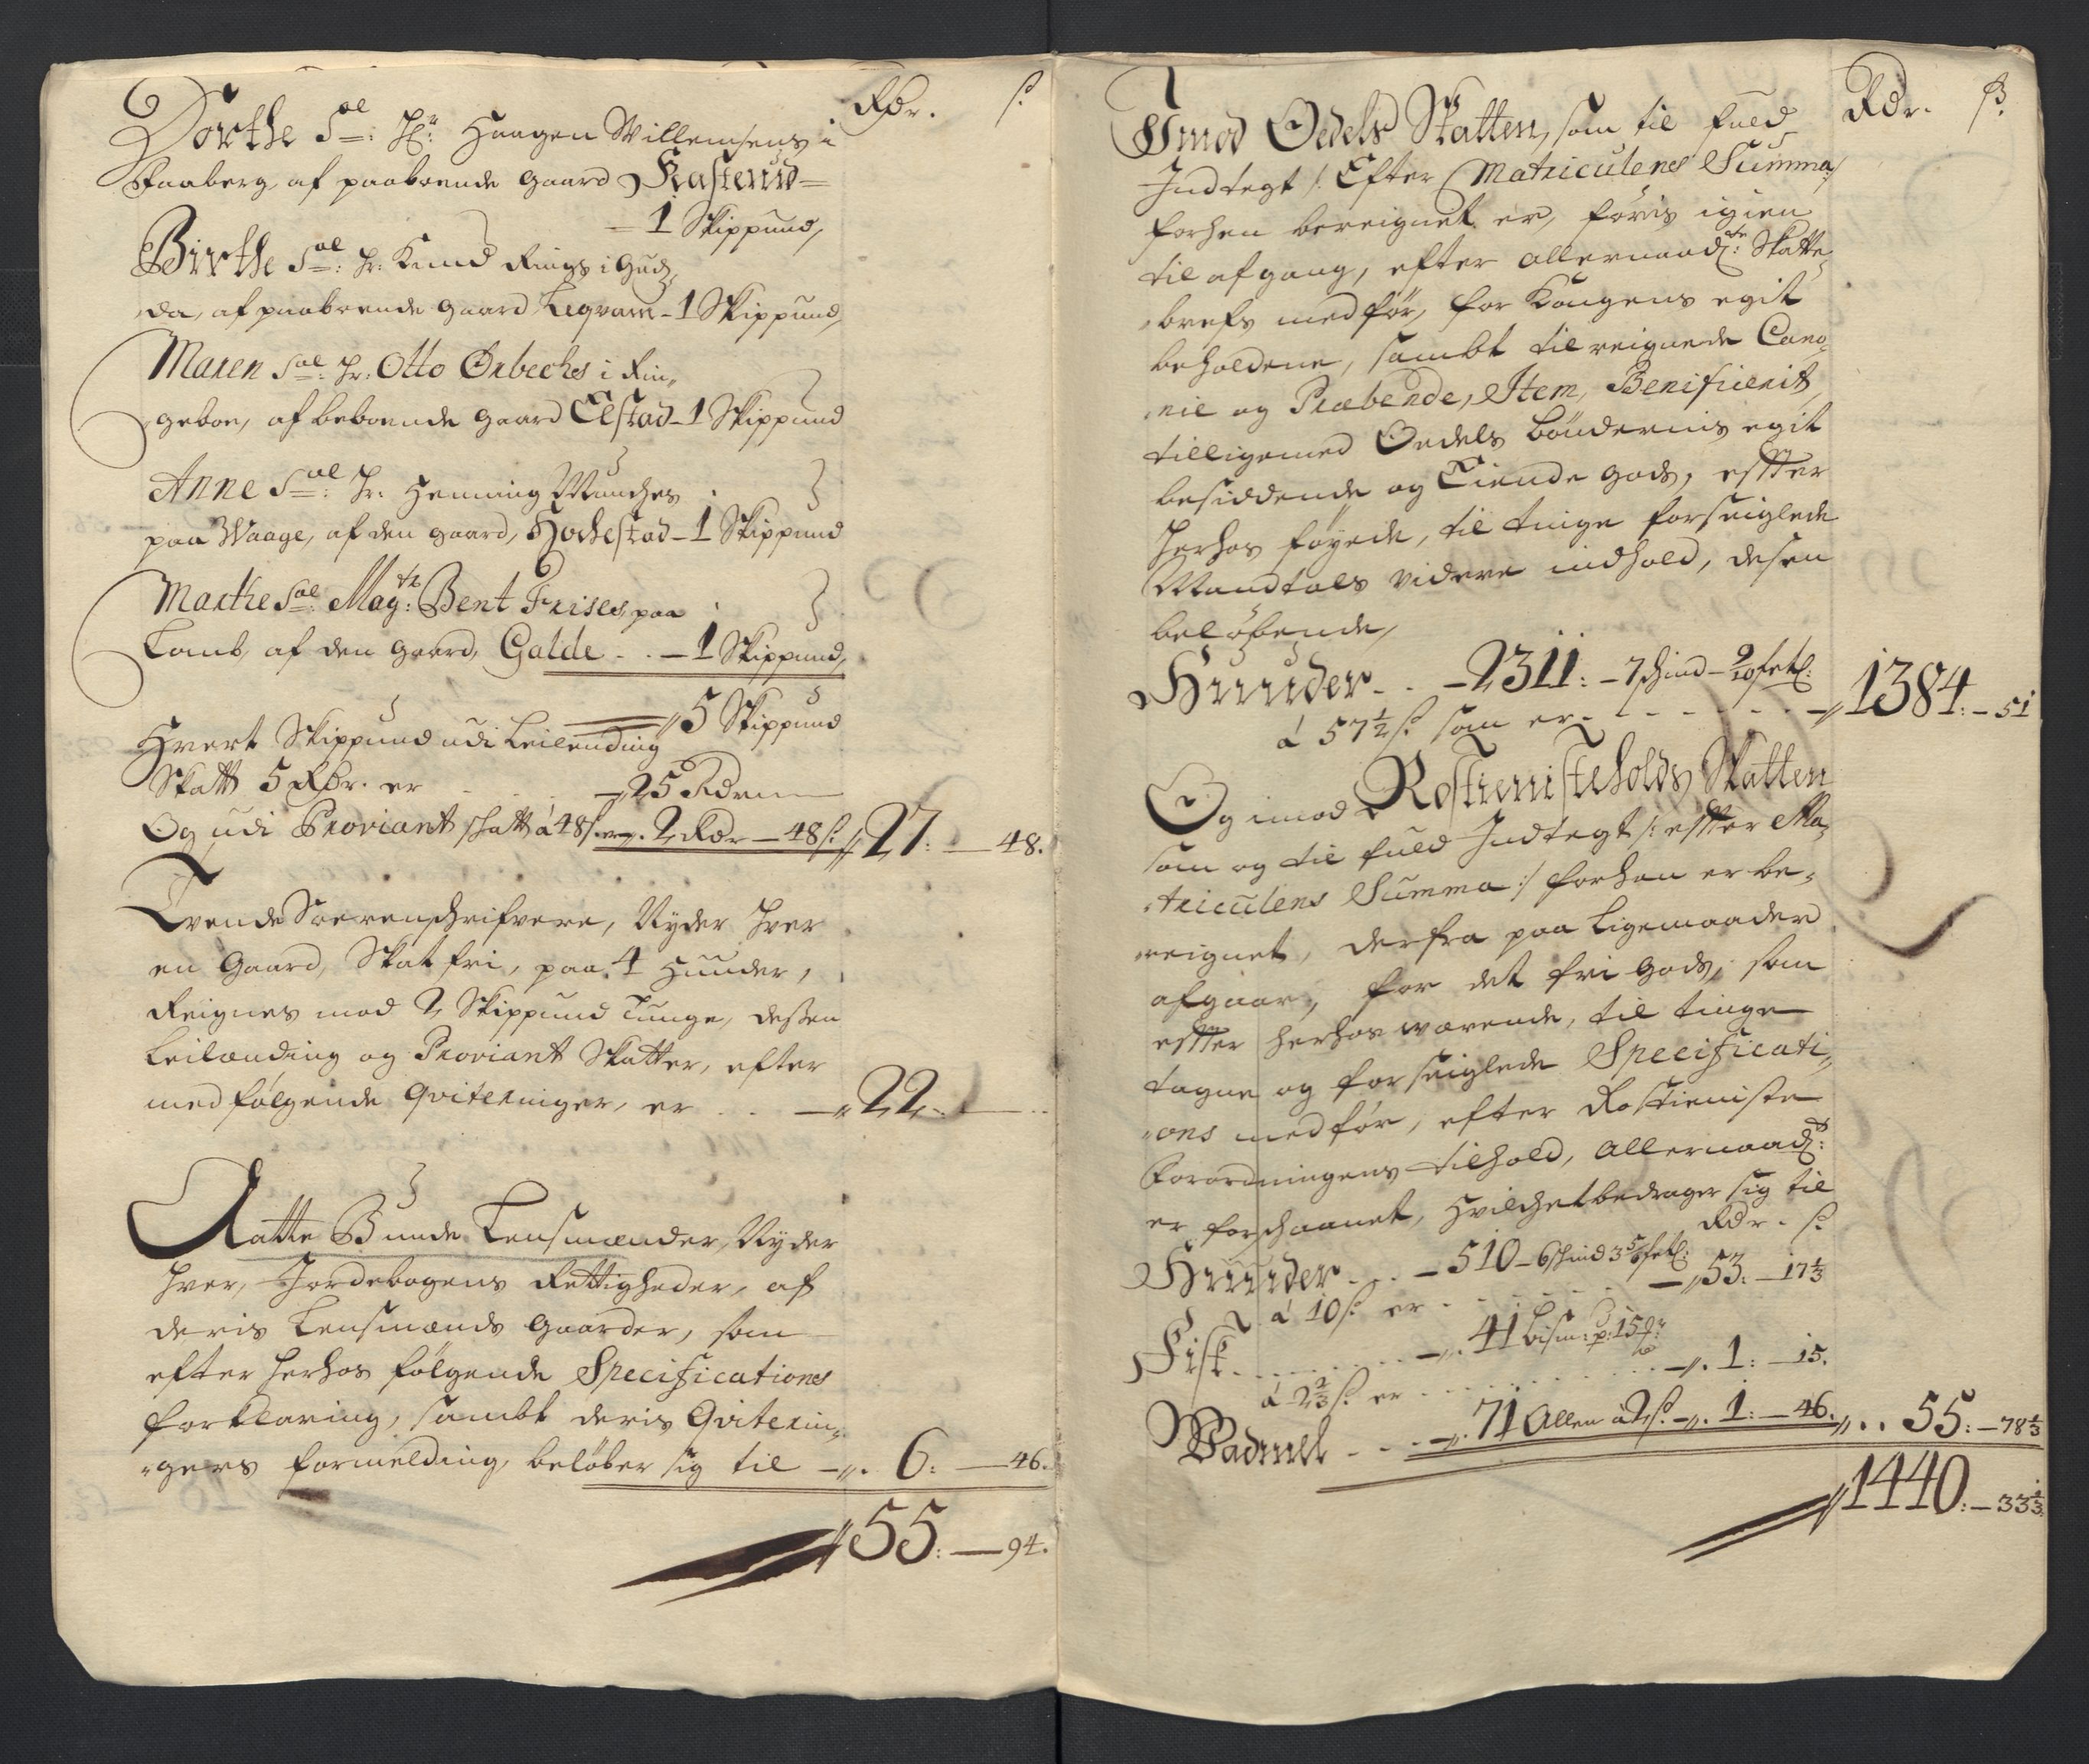 Rdr. ß.
Dorthe Sal: Hr: Haagen Willemsens i
Faaberg, af paaboende gaard Kasterud
1 Skippund,
Birthe Sal: Hr: Knud Rings i Gud,
da, af paaboende gaard Leqvam - 1 Skippund,
Maren Sal: Hr: Otto Ørbeches i Rin,
geboe, af beboende gaard Elstad - 1 Skippund
Anne Sal: Hr: Henning Munches
paa Waage, af den gaard, Hochestad - 1 Skippund
Marthe Sal: Magtr: Bent Frises, paa
Lomb, af den gaard, Galde - 1 Skippund,
5 Skippund
Hvert Skippund udi Leilending
Skatt 5 Rdr. er - 25 Rdr
Og udi Proviant skatt à 48 ß. er 2 Rdr - 48 ß. 27: - 48.
Tvende Soerenschrifvere, Nyder hver
en Gaard, Skat fri, paa 4 Huuder,
Reignes mod 2 Skippund Tunge, deßen
Leilænding og Proviant Skatter, efter
medfølgende Qviteringer, er - 22:
Aatte Bunde Lensmænder, Nyder
hver, Jordebogens Rettigheder, af
deris Lensmands gaarder, som
efter herhos følgende Specifications
forklaring, sambt deris Qviterin,
gers formelding, beløber sig til - 6: - 46.
55: - 94.
Rdr. ß.
Imod Odels Skatten, som til fuld
Indtegt /: Efter Matriculens Summa
forhen bereignet er, føris igien
til afgang, efter allernaadste: Skatte,
brefs medfør, for Kongens egit
beholdene, sambt tilreignede Cano,
nie og Præbende, Item, Benificerit
tilligemed Odels bøndernis egit
besiddende og Tiende gods, effter
herhos føyede, til tinge forseiglede
Mandtals videre indhold, desen
beløbende,
Huuder - 2311: - 7 schind - 9/10 fetl: 1384: - 51
à 57 1/2 ß. som er
Og imod Rostienisteholds Skatten
som og til fuld Indtegt /: effter Ma,
triculens Summa :/ forhen er be,
reignet, derfra paa Ligemaader
afgaar, for det fri gods, som
effter herhos værende, til tinge
tagne og forseiglede Specificati,
ons medfør, efter Rostieniste
Forordningens tilhold, allernaadst:
er forschaanet, hvilchet bedrager sig til
Rdr. ß.
Huuder - 510 - 6 schind 3 5/6 fetl:
à 10 ß. er - 53: - 17 1/3
Fisk - 41 bism: p: 15
à 2 2/3 ß. er - 1: - 15.
Wadmel - 71 Allen à 2 ß. - 1: - 46. 55: - 78 1/3
1440: - 33 1/3